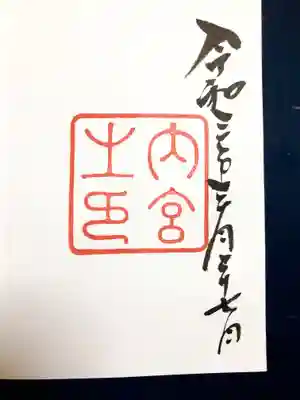 令和 年 月二十七日
内宮
之印